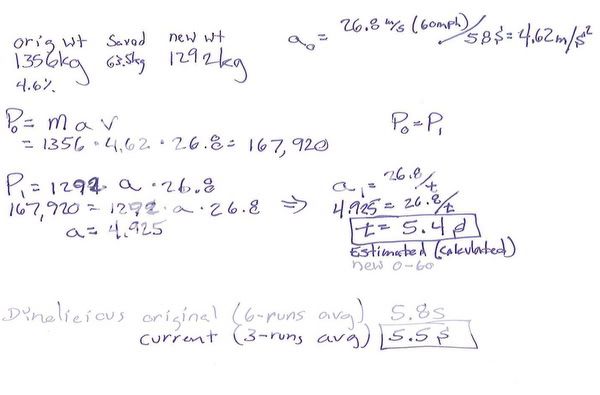 orig wt saved new wt
1356kg 63.5kg 1292kg
4.6%
a₀ = 26.8 m/s (60mph) / 5.8s = 4.62m/s²
P₀ = m a v
= 1356 · 4.62 · 26.8 = 167,920
P₀ = P₁
P₁ = 1292 · a · 26.8
167,920 = 1292 · a · 26.8 ⇒
a = 4.925
a₁ = 26.8/t
4.925 = 26.8/t
t = 5.4 s
Estimated (calculated)
new 0-60
Dynolicious original (6-runs avg) 5.8s
current (3-runs avg) 5.5s